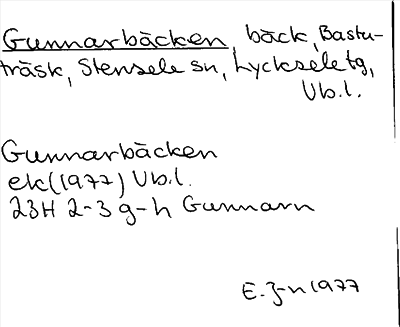 Gunnarbäcken, bäck, Bastu-
träsk, Stensele sn, Lycksele tg,
Vb.l.
Gunnarbäcken
ek(1977) Vb.l.
23H 2-3 g-h Gunnarn
E. J-n 1977